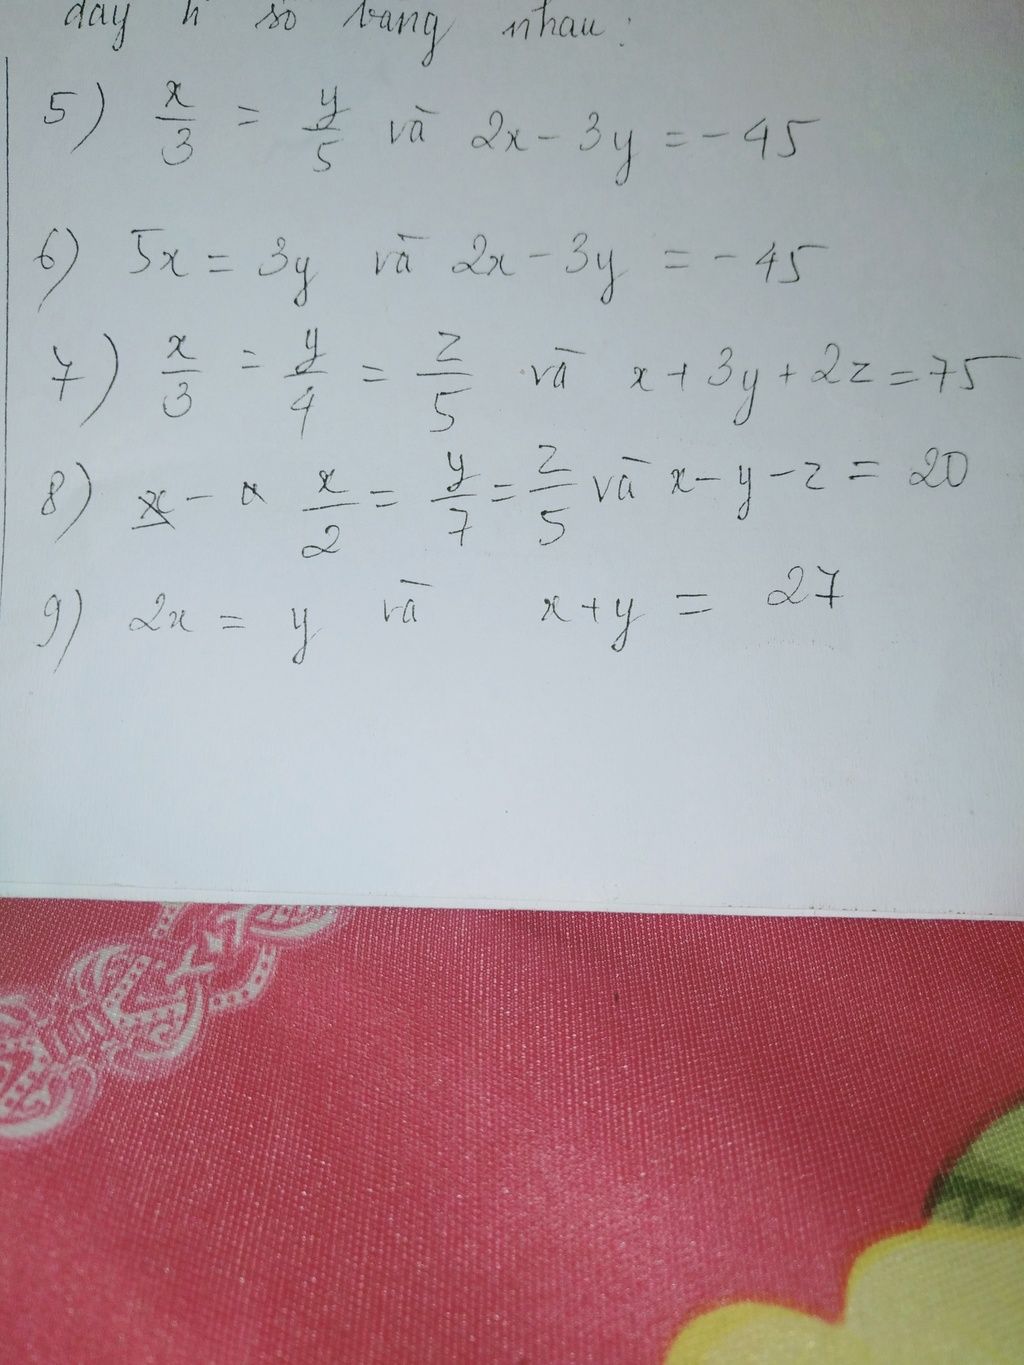 dãy tỉ số bằng nhau:
5) x/3 = y/5 và 2x - 3y = - 45
6) 5x = 3y và 2x - 3y = - 45
7) x/3 = y/4 = z/5 và x + 3y + 2z = 75
8) x/2 = y/7 = z/5 và x - y - z = 20
9) 2x = y và x + y = 27